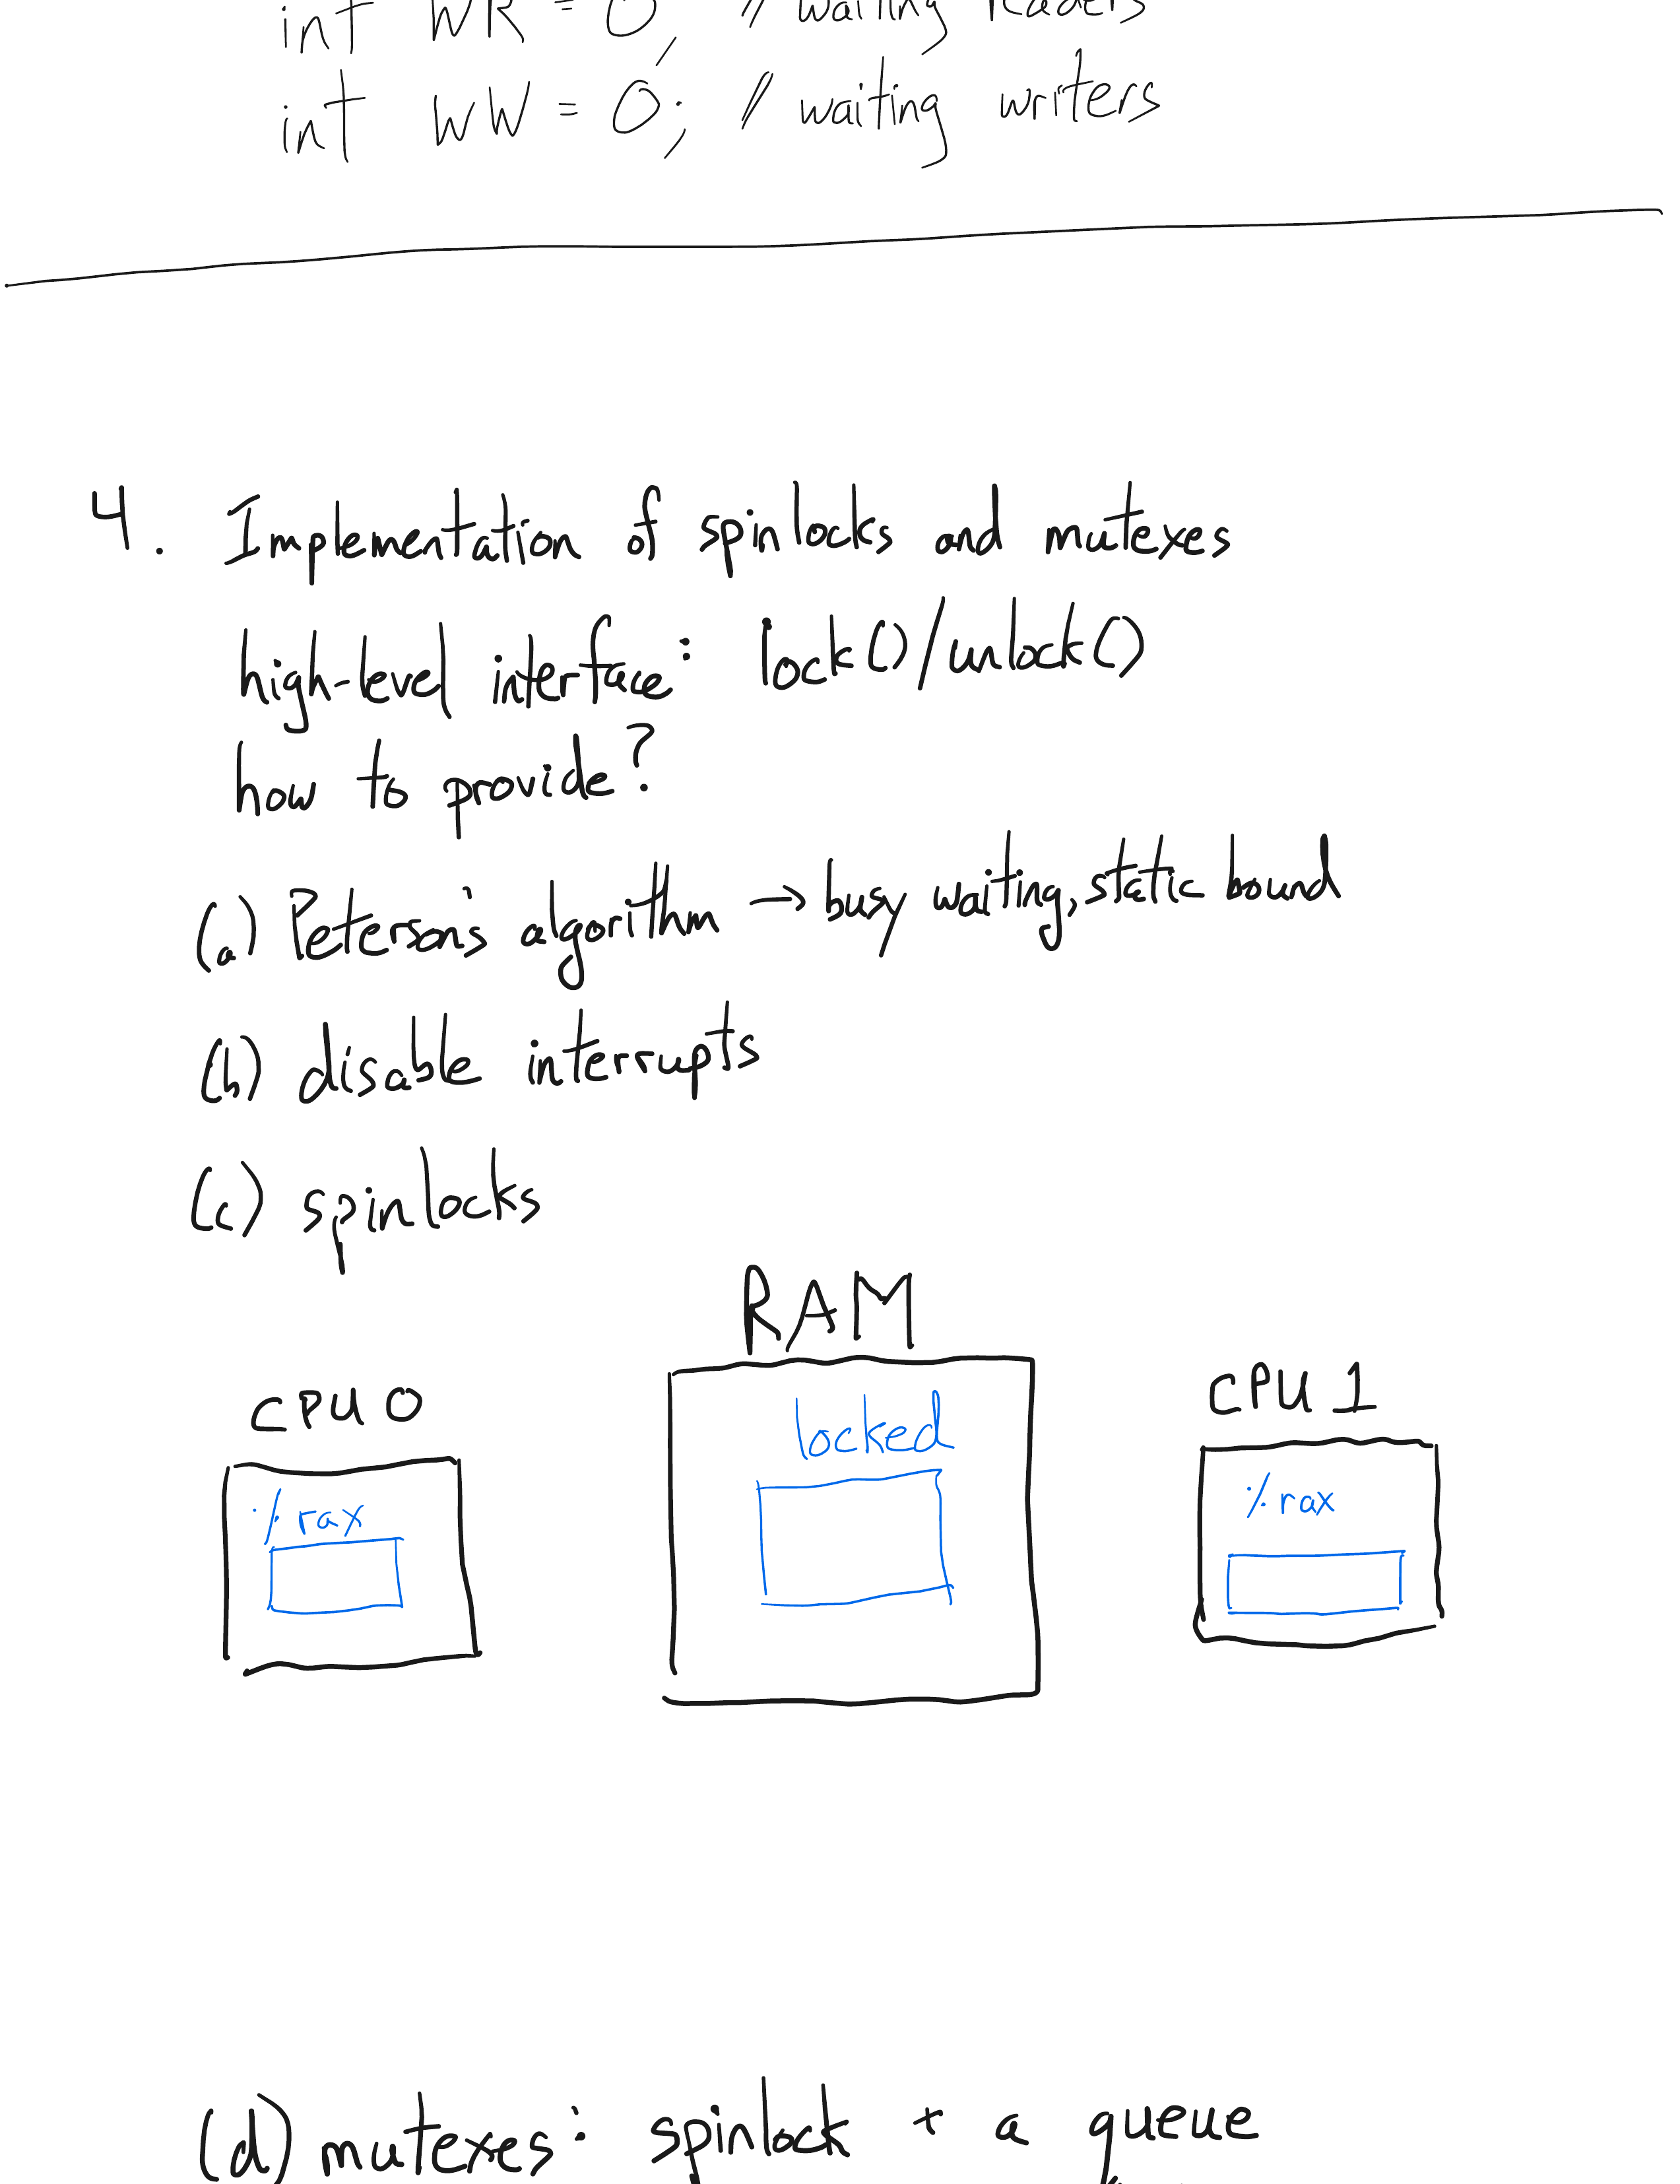 int WR = 0; // waiting readers
int WW = 0; // waiting writers
4. Implementation of spinlocks and mutexes
high-level interface: lock()/unlock()
how to provide?
(a) Peterson's algorithm → busy waiting, static bound
(b) disable interrupts
(c) spinlocks
RAM
CPU 0
CPU 1
locked
%rax
%rax
(d) mutexes: spinlock + a queue